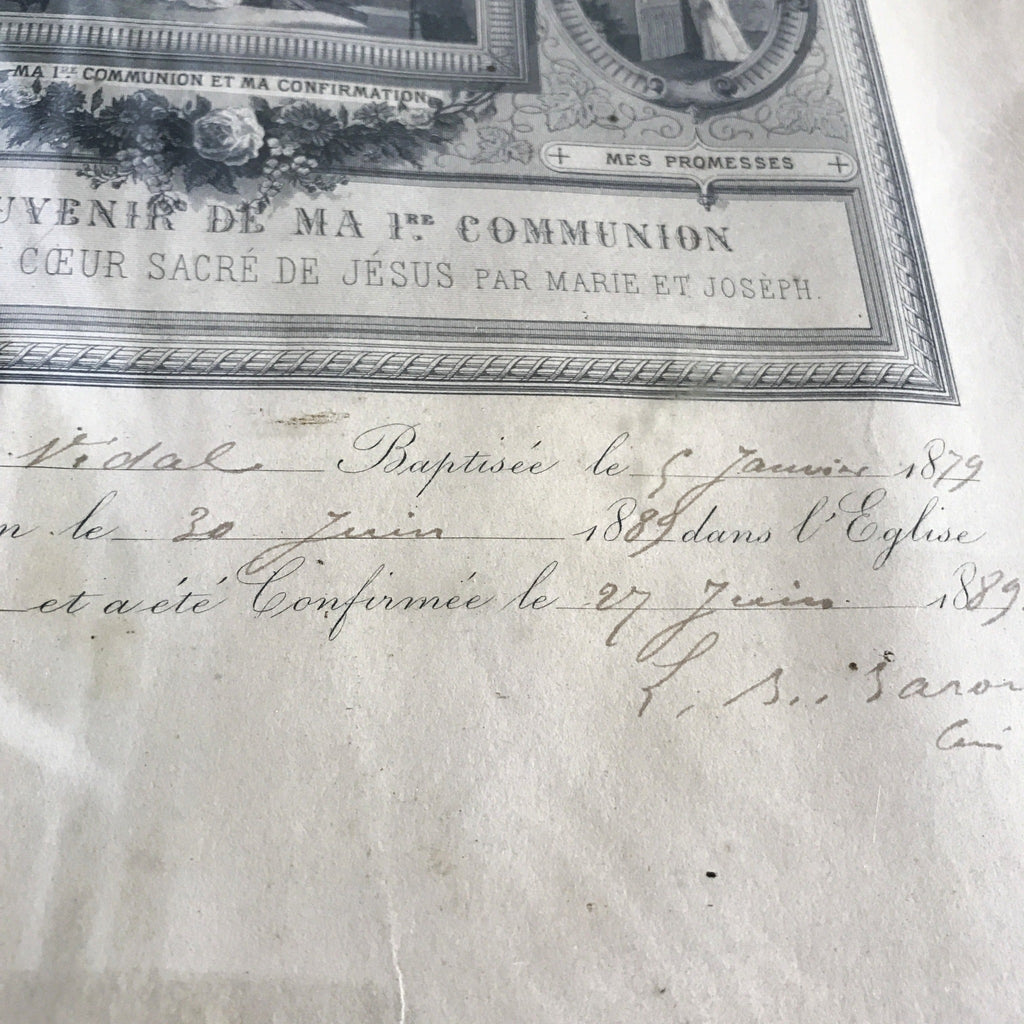 MA 1RE COMMUNION ET MA CONFIRMATION
+ MES PROMESSES +
UVENIR DE MA 1RE COMMUNION
CŒUR SACRÉ DE JÉSUS PAR MARIE ET JOSÈPH.
Vidal Baptisée le 5 Janvier 1879
n le 30 Juin 1889 dans l'Eglise
et a été Confirmée le 27 Juin 1889.